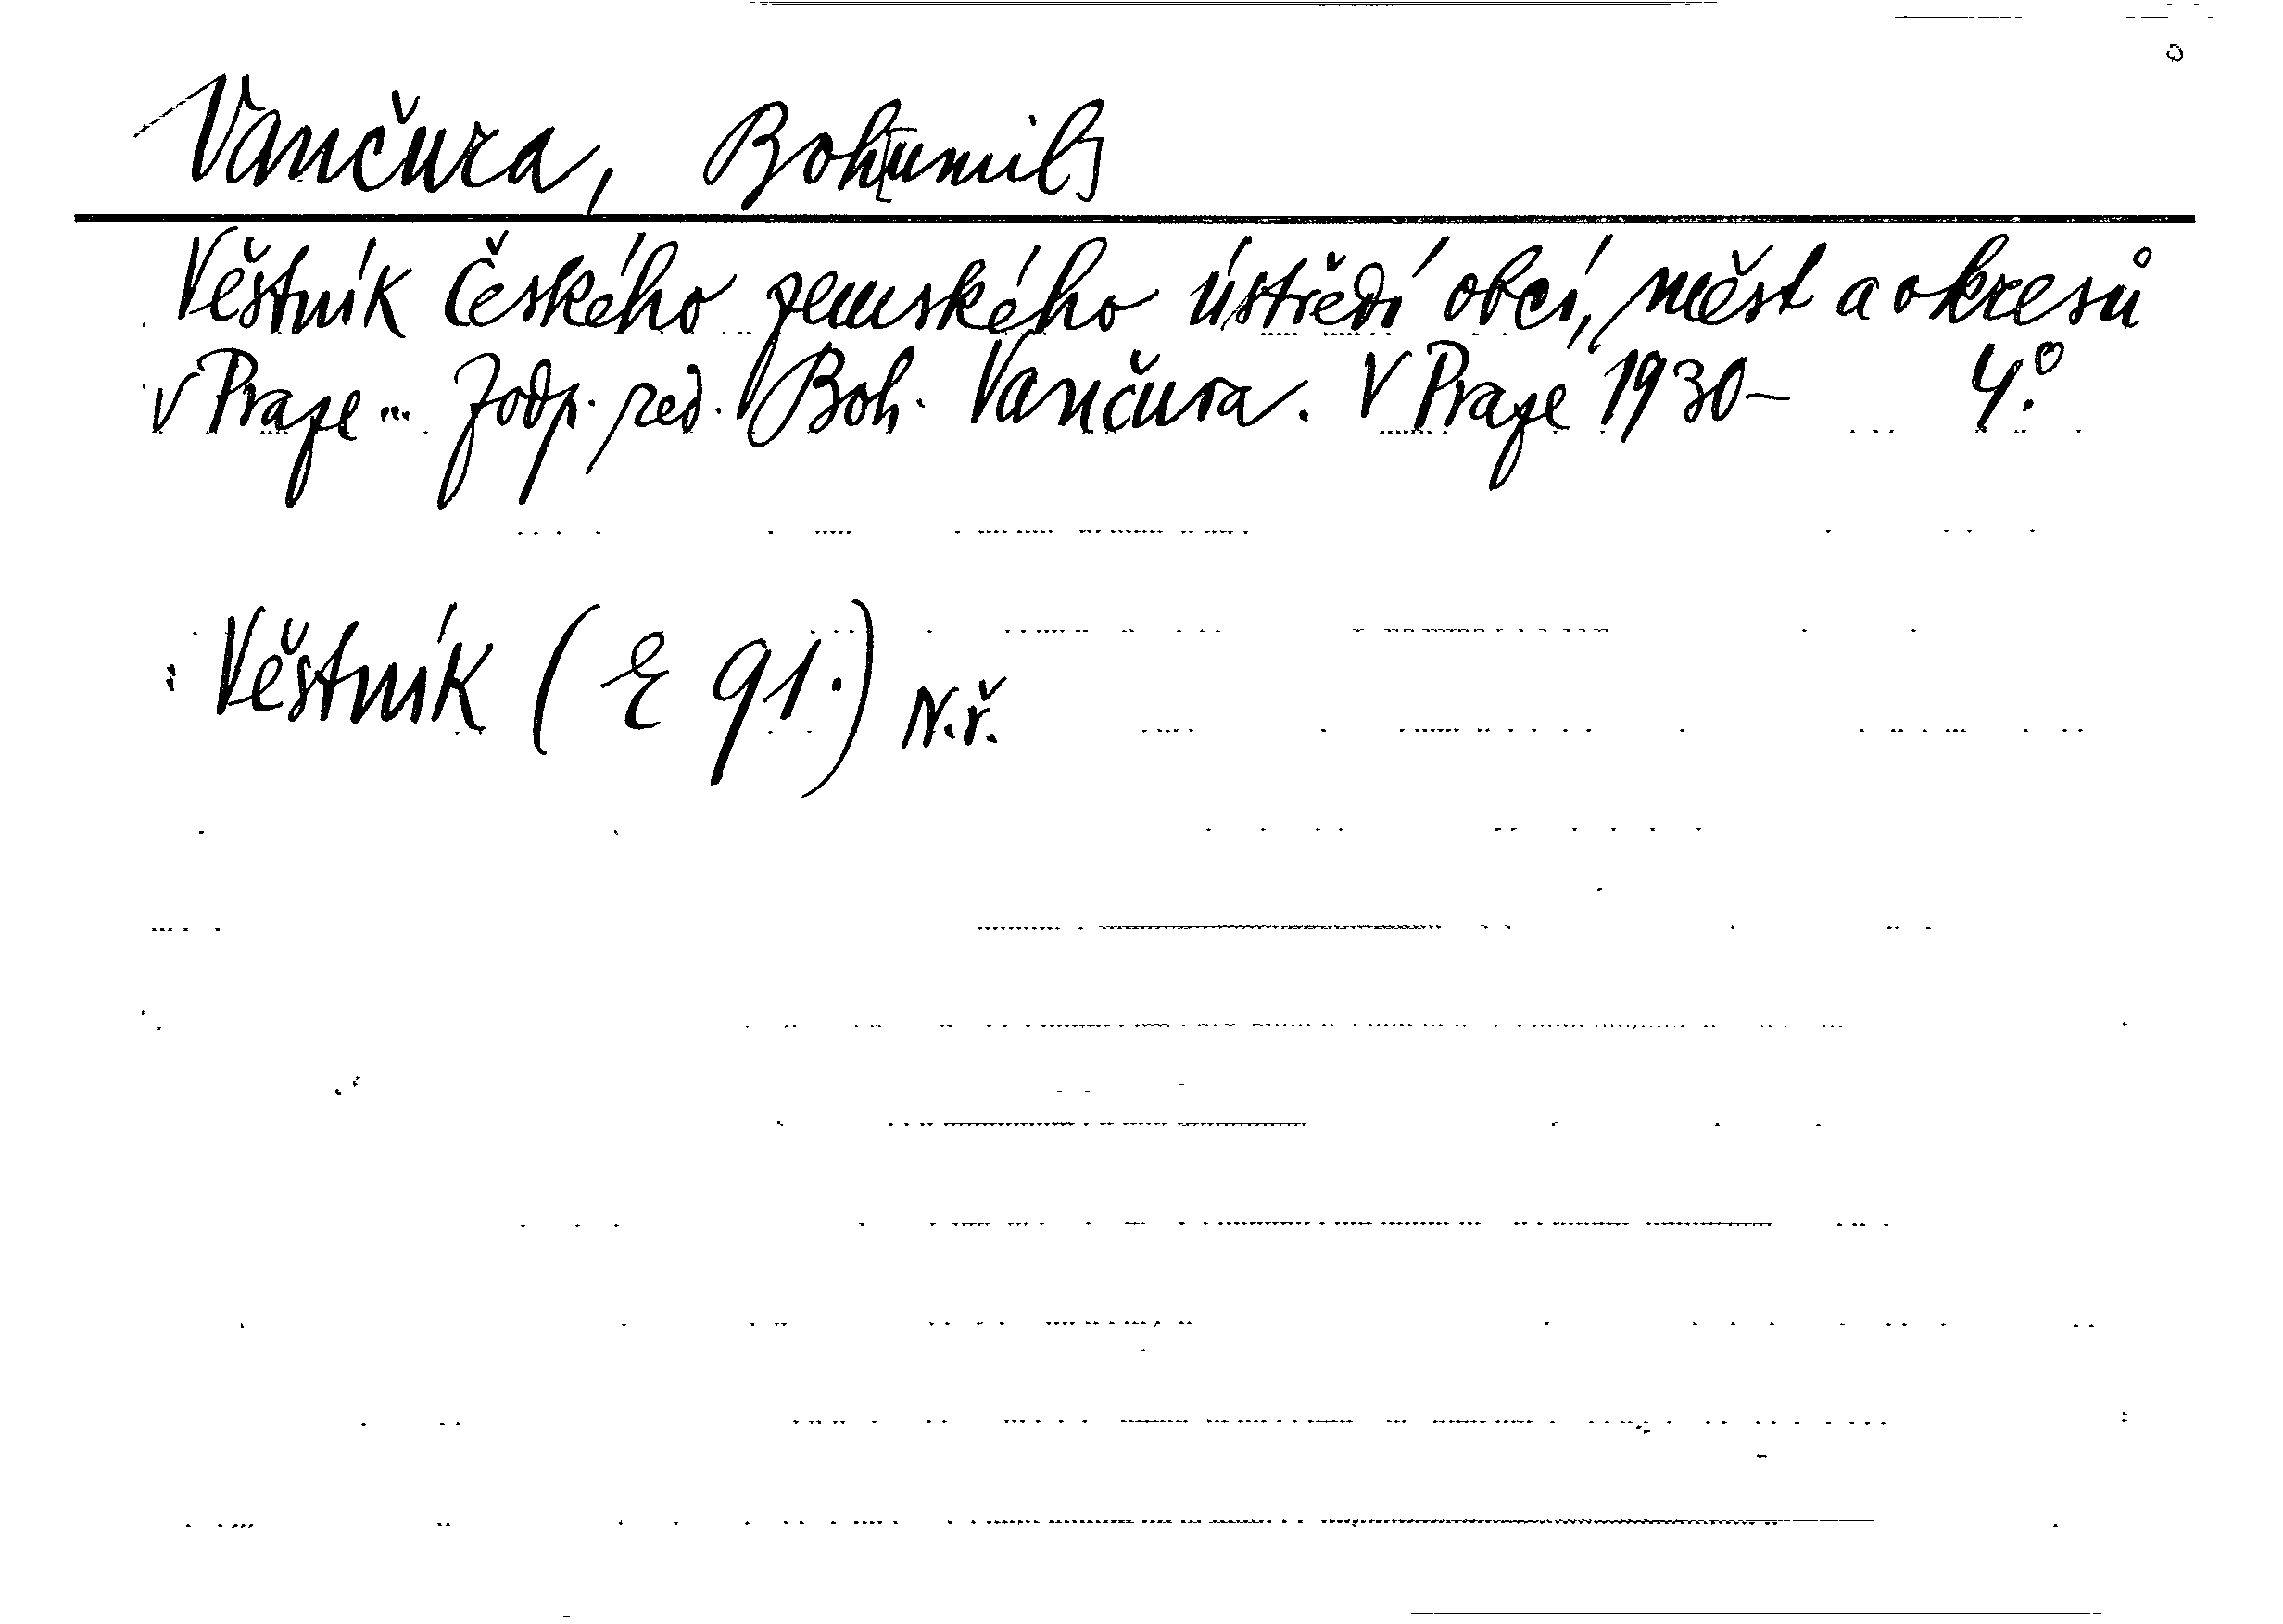 Vančura, Boh[umil]
Věštník Českého zemského ústředí obcí, měst a okresů
v Praze ... Zodp. red. Boh. Vančura. V Praze 1930- 4°.
: Věštník (E 91.) N.ř.